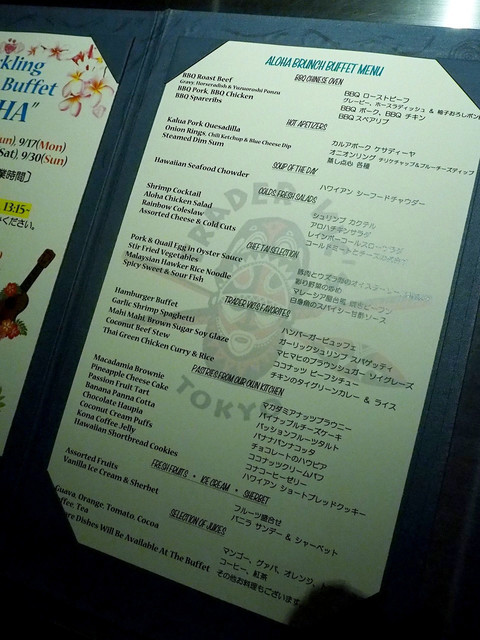 kling
Buffet
HA"
un), 9/17(Mon)
Sat), 9/30(Sun)
業時間]
13:15~
ください。
ALOHA BRUNCH BUFFET MENU
BBQ CHINESE OVEN
BBQ Roast Beef
Gravy, Horseradish & Yuzuoroshi Ponzu
BBQ Pork, BBQ Chicken
BBQ Spareribs
BBQ ローストビーフ
グレービー、ホースラディッシュ & 柚子おろしポン
BBQ ポーク、BBQ チキン
BBQ スペアリブ
HOT APETIZERS
Kalua Pork Quesadilla
Onion Rings, Chili Ketchup & Blue Cheese Dip
Steamed Dim Sum
カルアポーク ケサディーヤ
オニオンリング チリケチャップ&ブルーチーズディップ
蒸し点心 各種
SOUP OF THE DAY
Hawaiian Seafood Chowder
ハワイアン シーフードチャウダー
COLDS, FRESH SALADS
Shrimp Cocktail
Aloha Chicken Salad
Rainbow Coleslaw
Assorted Cheese & Cold Cuts
シュリンプ カクテル
アロハチキンサラダ
レインボーコールスローサラダ
CHEF TAI SELECTION
Pork & Quail Egg in Oyster Sauce
Stir Fried Vegetables
Malaysian Hawker Rice Noodle
Spicy Sweet & Sour Fish
彩り野菜の炒め
マレーシア屋台風 焼きビーフン
白身魚のスパイシー甘酢ソース
TRADER VIC'S FAVORITES
Hamburger Buffet
Garlic Shrimp Spaghetti
Mahi Mahi, Brown Sugar Soy Glaze
Coconut Beef Stew
Thai Green Chicken Curry & Rice
ハンバーガービュッフェ
ガーリックシュリンプ スパゲッティ
マヒマヒのブラウンシュガー ソイグレーズ
ココナッツ ビーフシチュー
チキンのタイグリーンカレー & ライス
PASTRIES FROM OUR OWN KITCHEN
Macadamia Brownie
Pineapple Cheese Cake
Passion Fruit Tart
Banana Panna Cotta
Chocolate Haupia
Coconut Cream Puffs
Kona Coffee Jelly
Hawaiian Shortbread Cookies
マカダミアナッツブラウニー
パイナップルチーズケーキ
パッションフルーツタルト
バナナパンナコッタ
チョコレートのハウピア
ココナッツクリームパフ
コナコーヒーゼリー
ハワイアン ショートブレッドクッキー
FRESH FRUITS • ICE CREAM • SHERBET
Assorted Fruits
Vanilla Ice Cream & Sherbet
フルーツ盛合せ
バニラ サンデー & シャーベット
SELECTION OF JUICES
Guava, Orange, Tomato, Cocoa
ffee, Tea
ore Dishes Will Be Available At The Buffet
マンゴー、グァバ、オレンジ、
コーヒー、紅茶
その他お料理もございます
TRADER VI
TOKY